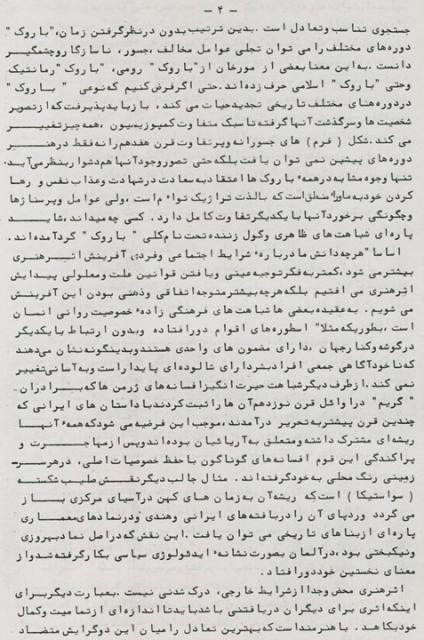 — ۴ —
جستجوی تناسب وتعادل است . بدین ترتیب بدون درنظرگرفتن زمان، "باروک"
دوره‌های مختلف را می توان تجلی عوامل مخالف ، جسور، ناسازگاروچشمگیر
دانست . به این معنابعضی از مورخان از "باروک" رومی، "باروک" رمانتیک
وحتی "باروک" اسلامی حرف زده‌اند . حتی اگرفرض کنیم که نوعی "باروک"
دردوره‌های مختلف تاریخی تجدیدحیات می کند ، بازبایدپذیرفت که ازتصویر
شخصیت ها وسرگذشت آنهاگرفته تا سبک متفاوت کمپوزیسیون ، همه چیزتغییر
می کند . شکل ( فرم ) های جسورانه وپرتفاوت قرن هفدهم رانه فقط درهنر
دوره‌های پیشین نمی توان یافت بلکه حتی تصور وجود آنها هم دشواربنظرمی آید .
تنها وجوه مشابه درهمه‌ٔ باروک ها اعتقاد به سعادت درشهادت وعذاب نفس و رها
کردن خودبه ماوراء منطق است که بالذت تراژیک توأم است ، ولی عوامل وپرسناژها
وچگونگی برخوردآنها با یکدیگرتفاوت کامل دارد . کسی چه میداند ، شاید
پاره‌ای شباهت های ظاهری وگول زننده تحت نام کلی "باروک" گردآمده‌اند .
اساسا" هرچه دانش ما درباره‌ٔ شرایط اجتماعی وفردی آفرینش اثرهنری
بیشترمی شود ، کمتربه فکرتوجیه عینی ویافتن قوانین علت ومعلولی پیدایش
اثرهنری می افتیم بلکه هرچه بیشترمتوجه اتفاقی وذهنی بودن این آفرینش
می شویم . به عقیده بعضی ها شباهت های فرهنگی زاده‌ٔ خصوصیت روانی انسان
است ، بطوریکه مثلا" اسطوره‌های اقوام دورافتاده وبدون ارتباط بایکدیگر
درگوشه وکنارجهان ، دارای مضمون های واحدی هستندوبدینگونه نشان می دهند
که ناخودآگاهی جمعی افرادبشردارای شالوده‌ای پایداراست وبه آسانی تغییر
نمی کند . ازطرف دیگرشباهت حیرت انگیزافسانه های ژرمن ها که برادران
"گریم" دراوائل قرن نوزدهم آن ها راثبت کردندبا داستان های ایرانی که
چندین قرن پیشتربه تحریر درآمدند ، موجب این فرضیه می شودکه همه‌ٔ آنها
ریشه‌ای مشترک داشته ومتعلق به آریائیان بوده‌اندوپس ازمهاجرت و
پراکندگی این قوم افسانه های گوناگون با حفظ خصوصیات اصلی ، درهر سر
زمینی رنگ محلی به خودگرفته‌اند . مثال جالب دیگرنقش صلیب شکسته
( سواستیکا ) است که ریشه آن به زمان های کهن درآسیای مرکزی باز
می گردد وردپای آن رادربافته های ایرانی وهندی ودرنمادهای معماری
پاره‌ای ازبناهای تاریخی می توان یافت . این نقش که دراصل نمادبهروزی
ونیکبختی بود ، درآلمان بصورت نشانه‌ٔ ایدئولوژی سیاسی بکارگرفته شدواز
معنای نخستین خود دورافتاد .
اثرهنری محض وجدا ازشرایط خارجی ، درک شدنی نیست . بعبارت دیگربرای
اینکه اثری برای دیگران دریافتنی باشدبایدتا اندازه‌ای ازتمامیت وکمال
خودبکاهد . با هنرمنداست که بهترین تعادل رامیان این دوگرایش متضاد